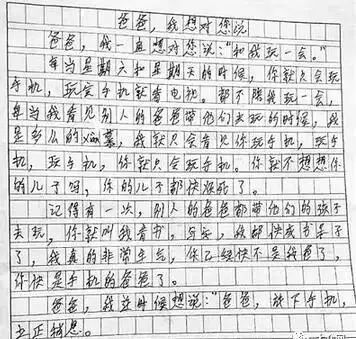 爸爸，我想对您说
爸爸，我一直想对您说：“和我玩一会。”
每当星期六和星期天的时候，你就只会玩
手机，玩完手机就看电视。都不陪我玩一会，
每当我看见别人的爸爸带他们去玩的时候，我
是多么的xian慕，我就只会看见你玩手机，玩手
机，玩手机，你就只会玩手机。你就不想想你
的儿子吗，你的儿子都快疯死了。
记得有一次，别人的爸爸都带他们的孩子
去玩，你就叫我看书，写字，我都快成书呆子
了，我真的非常生气，你已经快不是我爸爸了，
你快是手机的爸爸了。
爸爸，我这时候想说：“爸爸，放下手机，